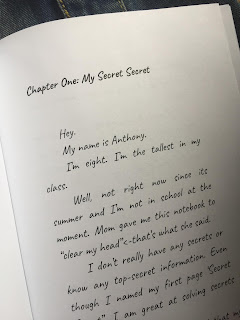 Chapter One: My Secret Secret
Hey.
My name is Anthony.
I'm eight. I'm the tallest in my
class.
Well, not right now since its
summer and I'm not in school at the
moment. Mom gave me this notebook to
"clear my head"<-that's what she said.
I don't really have any secrets or
know any top-secret information. Even
though I named my first page 'Secret
I am great at solving secrets